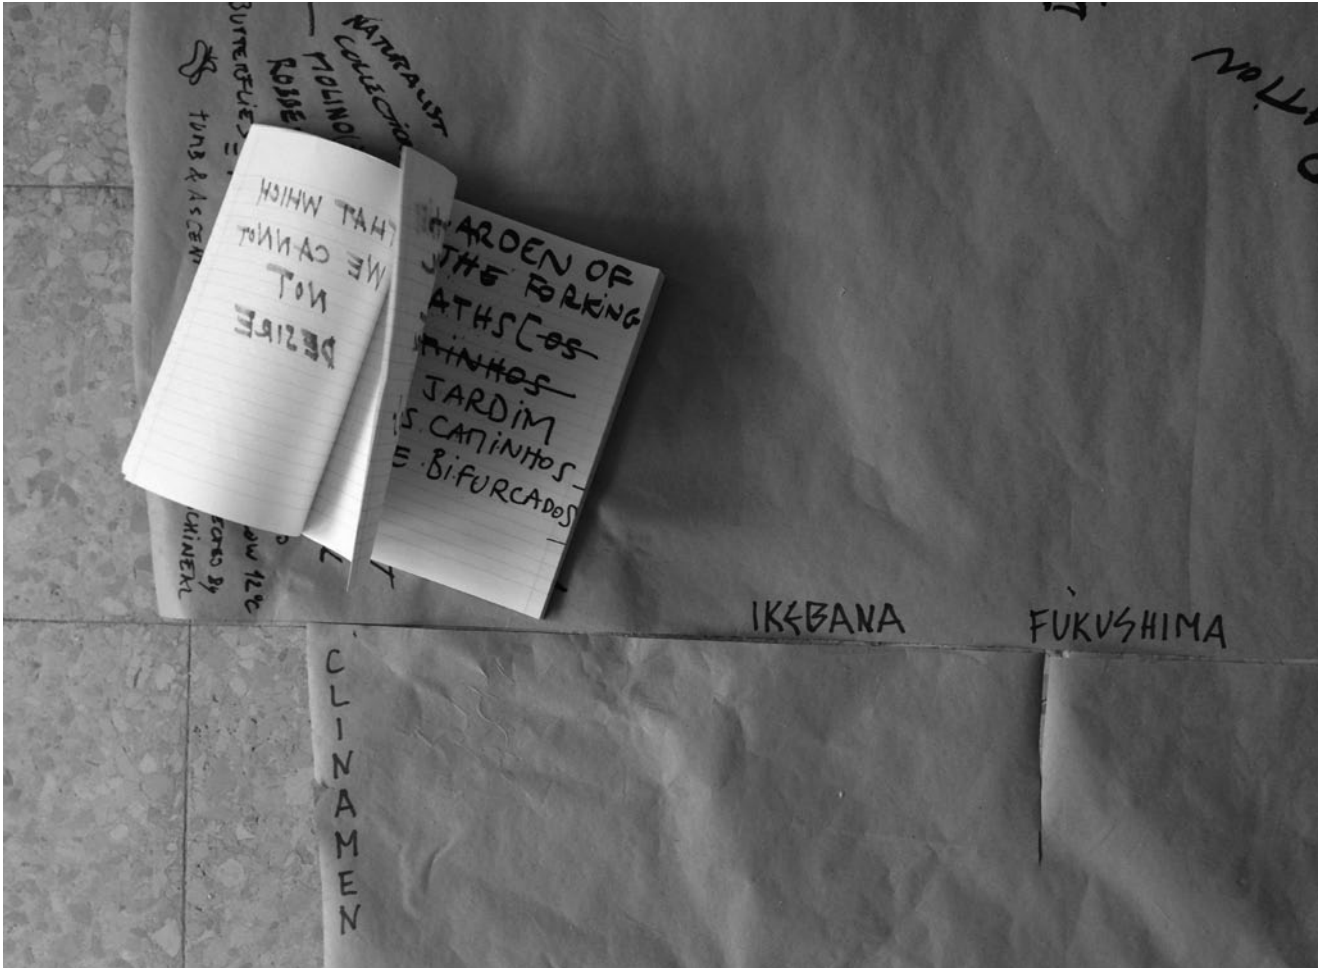 NATURALIST
COLLECTION
MOLINO
ROBBE
BUTTERFLIES =
TUMB & ASCEN
THAT WHICH
WE CANNOT
NOT
DESIRE
ARDEN OF
THE FORKING
ATHS (OS
MINHOS
JARDIM
S CAMINHOS
E BIFURCADOS
OW 12°C
ECTED BY
CHINERAL
IKEBANA
FUKUSHIMA
CLINAMEN